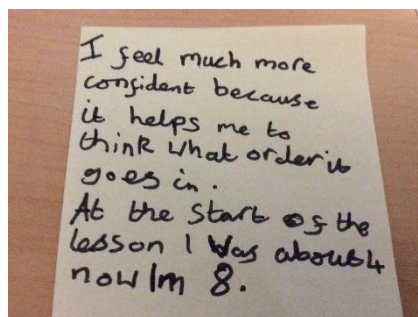 I feel much more
confident because
it helps me to
think what order it
goes in.
At the start of the
lesson I was about 4
now Im 8.